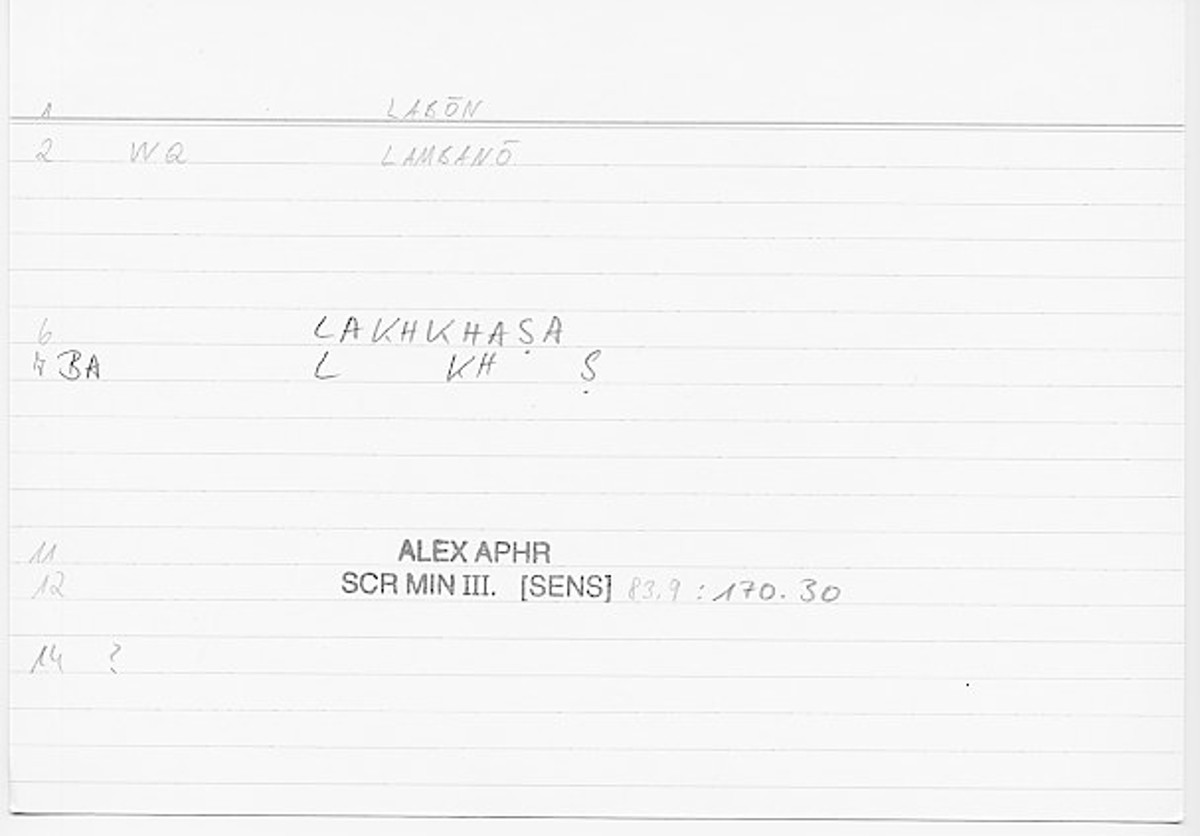 1 LABŌN
2 WQ LAMBANŌ
6 LAKHKHAṢA
7 BA L KH Ṣ
11 ALEX APHR
12 SCR MIN III. [SENS] 83.9 : 170.30
14 ?